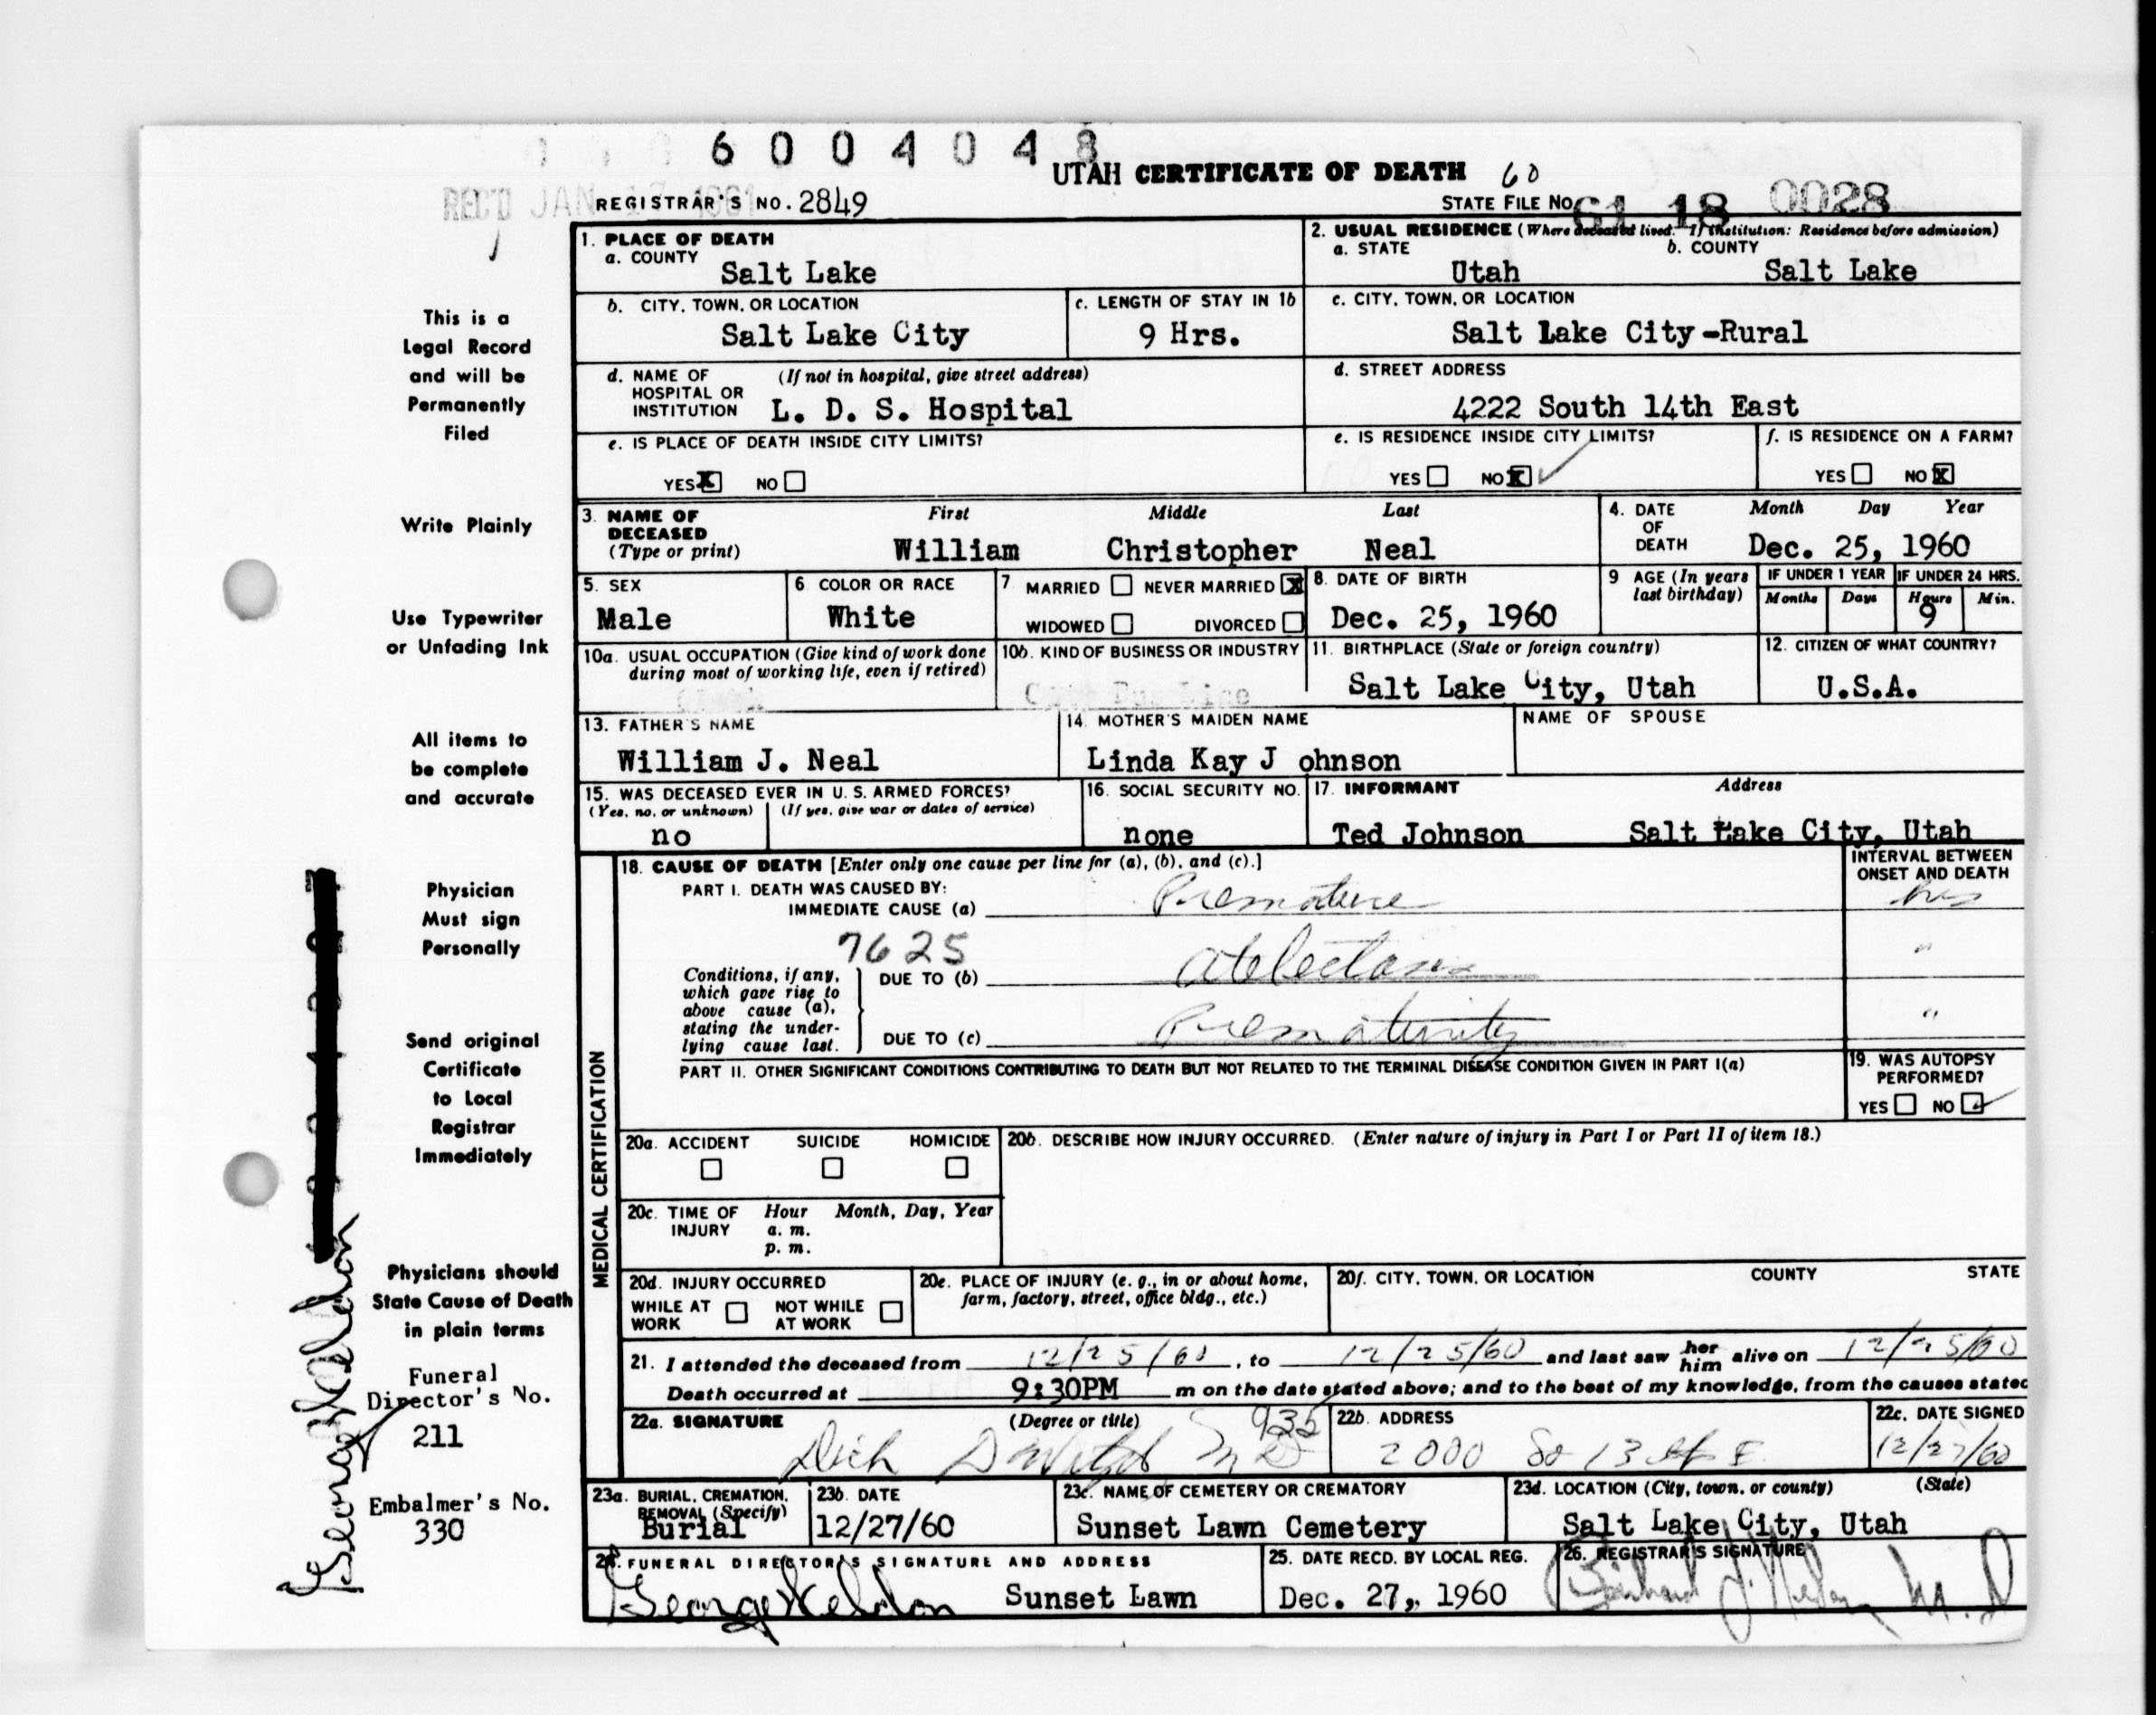 6004048
UTAH CERTIFICATE OF DEATH 60
REC'D JAN 17 1961
REGISTRAR'S NO. 2849
STATE FILE NO. 61 18 0028
1. PLACE OF DEATH
a. COUNTY
Salt Lake
2. USUAL RESIDENCE (Where deceased lived. If institution: Residence before admission)
a. STATE b. COUNTY
Utah Salt Lake
b. CITY, TOWN, OR LOCATION
Salt Lake City
c. LENGTH OF STAY IN 1b
9 Hrs.
c. CITY, TOWN, OR LOCATION
Salt Lake City-Rural
d. NAME OF (If not in hospital, give street address)
HOSPITAL OR
INSTITUTION L. D. S. Hospital
d. STREET ADDRESS
4222 South 14th East
e. IS PLACE OF DEATH INSIDE CITY LIMITS?
YES X NO
e. IS RESIDENCE INSIDE CITY LIMITS?
YES NO X
f. IS RESIDENCE ON A FARM?
YES NO X
3. NAME OF First Middle Last
DECEASED
(Type or print) William Christopher Neal
4. DATE Month Day Year
OF
DEATH Dec. 25, 1960
5. SEX
Male
6. COLOR OR RACE
White
7 MARRIED NEVER MARRIED X
WIDOWED DIVORCED
8. DATE OF BIRTH
Dec. 25, 1960
9 AGE (In years
last birthday)
IF UNDER 1 YEAR
Months Days
IF UNDER 24 HRS.
Hours Min.
9
10a. USUAL OCCUPATION (Give kind of work done
during most of working life, even if retired)
10b. KIND OF BUSINESS OR INDUSTRY
11. BIRTHPLACE (State or foreign country)
Salt Lake City, Utah
12. CITIZEN OF WHAT COUNTRY?
U.S.A.
13. FATHER'S NAME
William J. Neal
14. MOTHER'S MAIDEN NAME
Linda Kay J ohnson
NAME OF SPOUSE
15. WAS DECEASED EVER IN U. S. ARMED FORCES?
(Yes, no, or unknown) (If yes, give war or dates of service)
no
16. SOCIAL SECURITY NO.
none
17. INFORMANT Address
Ted Johnson Salt Lake City, Utah
MEDICAL CERTIFICATION
18. CAUSE OF DEATH [Enter only one cause per line for (a), (b), and (c).]
INTERVAL BETWEEN
ONSET AND DEATH
PART I. DEATH WAS CAUSED BY:
IMMEDIATE CAUSE (a) Premature hrs
7625
Conditions, if any,
which gave rise to
above cause (a),
stating the under-
lying cause last.
DUE TO (b) Atelectasis "
DUE TO (c) Prematurity "
PART II. OTHER SIGNIFICANT CONDITIONS CONTRIBUTING TO DEATH BUT NOT RELATED TO THE TERMINAL DISEASE CONDITION GIVEN IN PART I(a)
19. WAS AUTOPSY
PERFORMED?
YES NO ✓
20a. ACCIDENT SUICIDE HOMICIDE
20b. DESCRIBE HOW INJURY OCCURRED. (Enter nature of injury in Part I or Part II of item 18.)
20c. TIME OF Hour Month, Day, Year
INJURY a. m.
p. m.
20d. INJURY OCCURRED
WHILE AT NOT WHILE
WORK AT WORK
20e. PLACE OF INJURY (e. g., in or about home,
farm, factory, street, office bldg., etc.)
20f. CITY, TOWN, OR LOCATION COUNTY STATE
21. I attended the deceased from 12/25/60, to 12/25/60 and last saw her him alive on 12/25/60
Death occurred at 9:30PM m on the date stated above; and to the best of my knowledge, from the causes stated
22a. SIGNATURE (Degree or title) 935
Dick MD
22b. ADDRESS
2000 So 13th E
22c. DATE SIGNED
12/27/60
23a. BURIAL, CREMATION,
REMOVAL (Specify)
Burial
23b. DATE
12/27/60
23c. NAME OF CEMETERY OR CREMATORY
Sunset Lawn Cemetery
23d. LOCATION (City, town, or county) (State)
Salt Lake City, Utah
24. FUNERAL DIRECTOR'S SIGNATURE AND ADDRESS
George Weldon Sunset Lawn
25. DATE RECD. BY LOCAL REG.
Dec. 27, 1960
26. REGISTRAR'S SIGNATURE
M.D
This is a
Legal Record
and will be
Permanently
Filed
Write Plainly
Use Typewriter
or Unfading Ink
All items to
be complete
and accurate
Physician
Must sign
Personally
Send original
Certificate
to Local
Registrar
Immediately
Physicians should
State Cause of Death
in plain terms
Funeral
Director's No.
211
Embalmer's No.
330
George Weldon